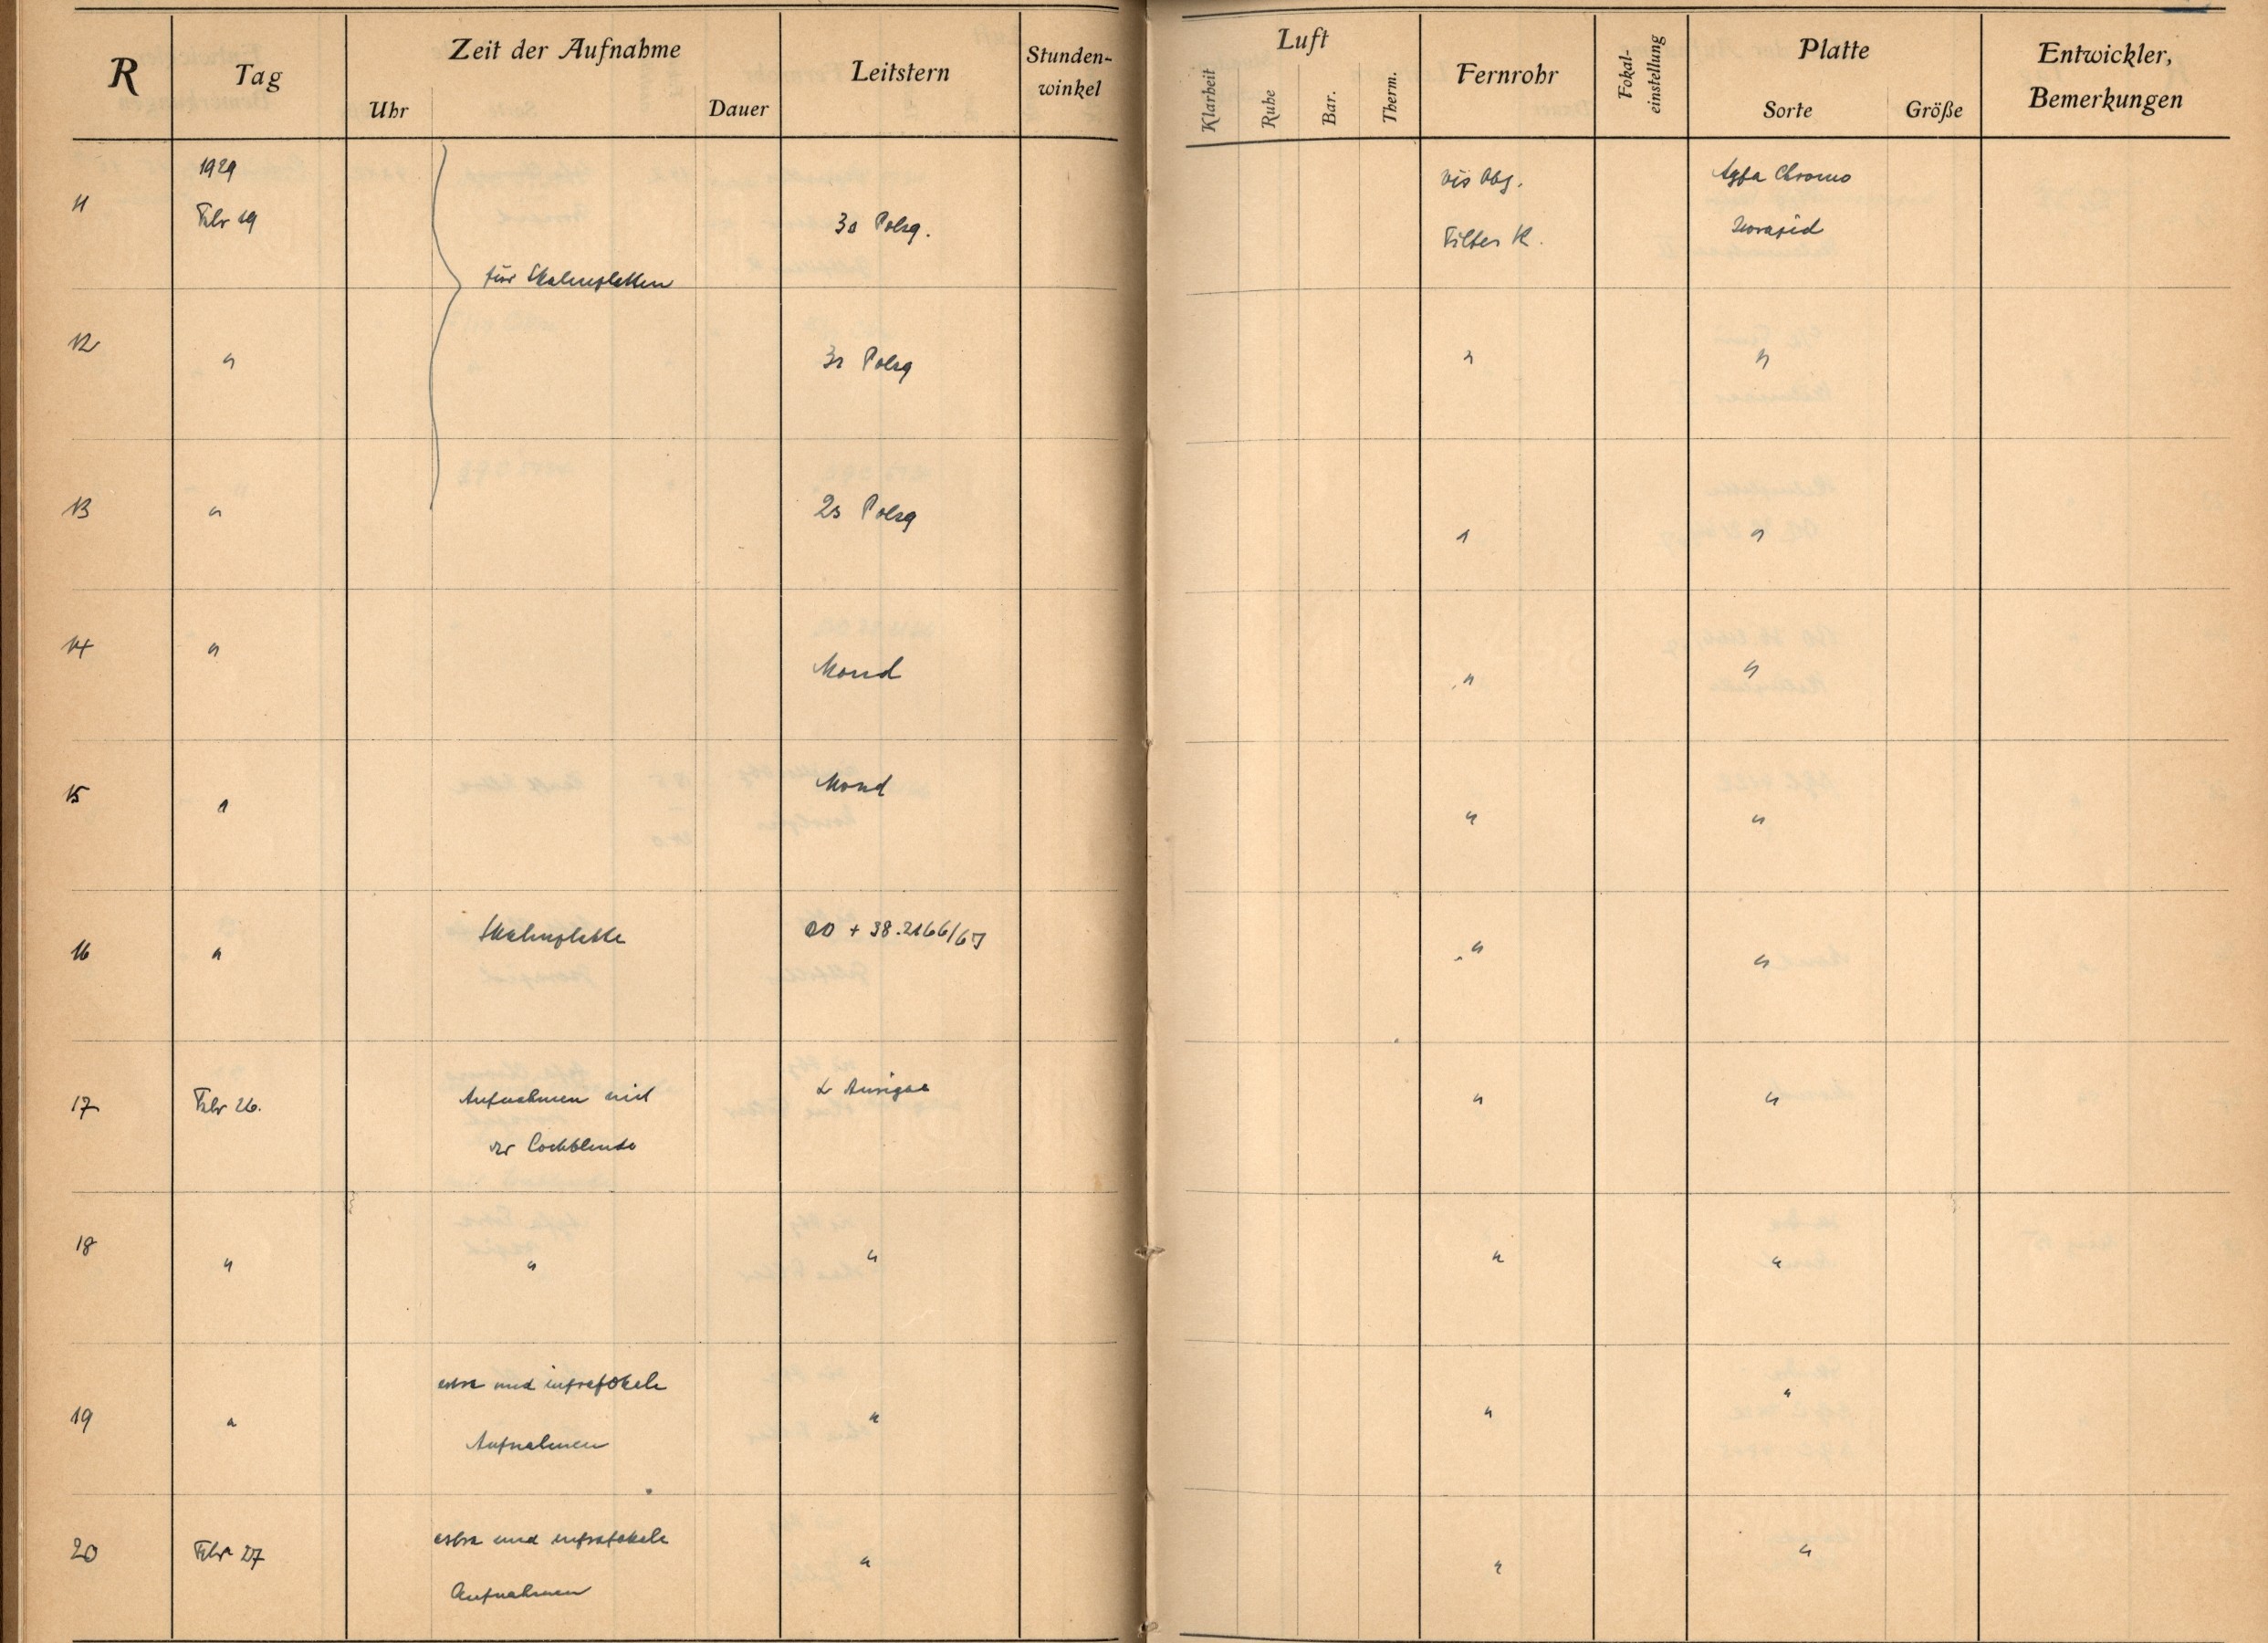 R Tag Zeit der Aufnahme Uhr Dauer Leitstern Stunden-winkel Luft Klarheit Ruhe Bar. Therm. Fernrohr Fokal-einstellung Platte Sorte Größe Entwickler, Bemerkungen
1929 vis Obj. Agfa Chromo
11 Febr 19 3s Polsq. Filter K. Isorapid
für Skalenplatten
12 " 3r Polsq " "
13 " 2s Polsq " "
14 " Mond " "
15 " Mond " "
16 " Skalenplatte BD + 38.2166/67 " "
17 Febr 26. Aufnahmen mit α Aurigae " "
der Lochblende
18 " " " " "
extra und infrafokale
19 " " " "
Aufnahmen
extra und infrafokale
20 Febr 27 " " "
Aufnahmen